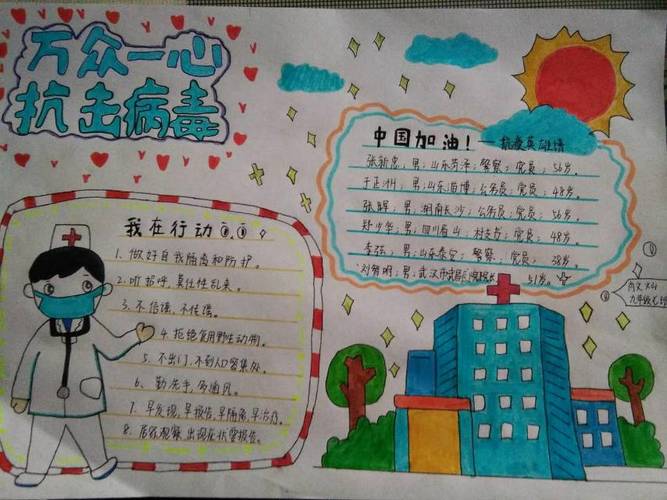 万众一心
抗击病毒
我在行动
1、做好自我隔离和防护。
2、听招呼,莫任性乱来。
3、不信谣,不传谣。
4、拒绝食用野生动物。
5、不出门,不到人口密集处。
6、勤洗手,多通风。
7、早发现,早报告,早隔离,早治疗。
8、居家观察,出现症状要报告。
中国加油!——抗疫英雄情
张新忠,男;山东菏泽;警察;党员;56岁。
于正洲,男;山东淄博;公务员;党员;48岁。
张辉,男;湖南长沙;公务员;党员;56岁。
郑少华,男;四川眉山;村支书;党员;48岁。
李弦;男;山东泰安;警察;党员;38岁。
刘智明;男;武汉市武昌医院院长 51岁。
九年级七班